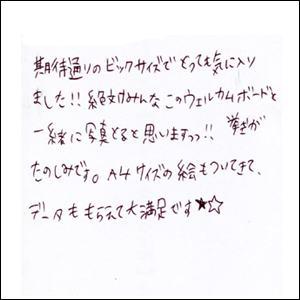 期待通りのビックサイズでとっても気に入り
ました!! 絶対みんなこのウェルカムボードと
一緒に写真とると思いますっっ!! 挙式が
たのしみです。A4サイズの絵もついてきて、
データももらえて大満足です★☆